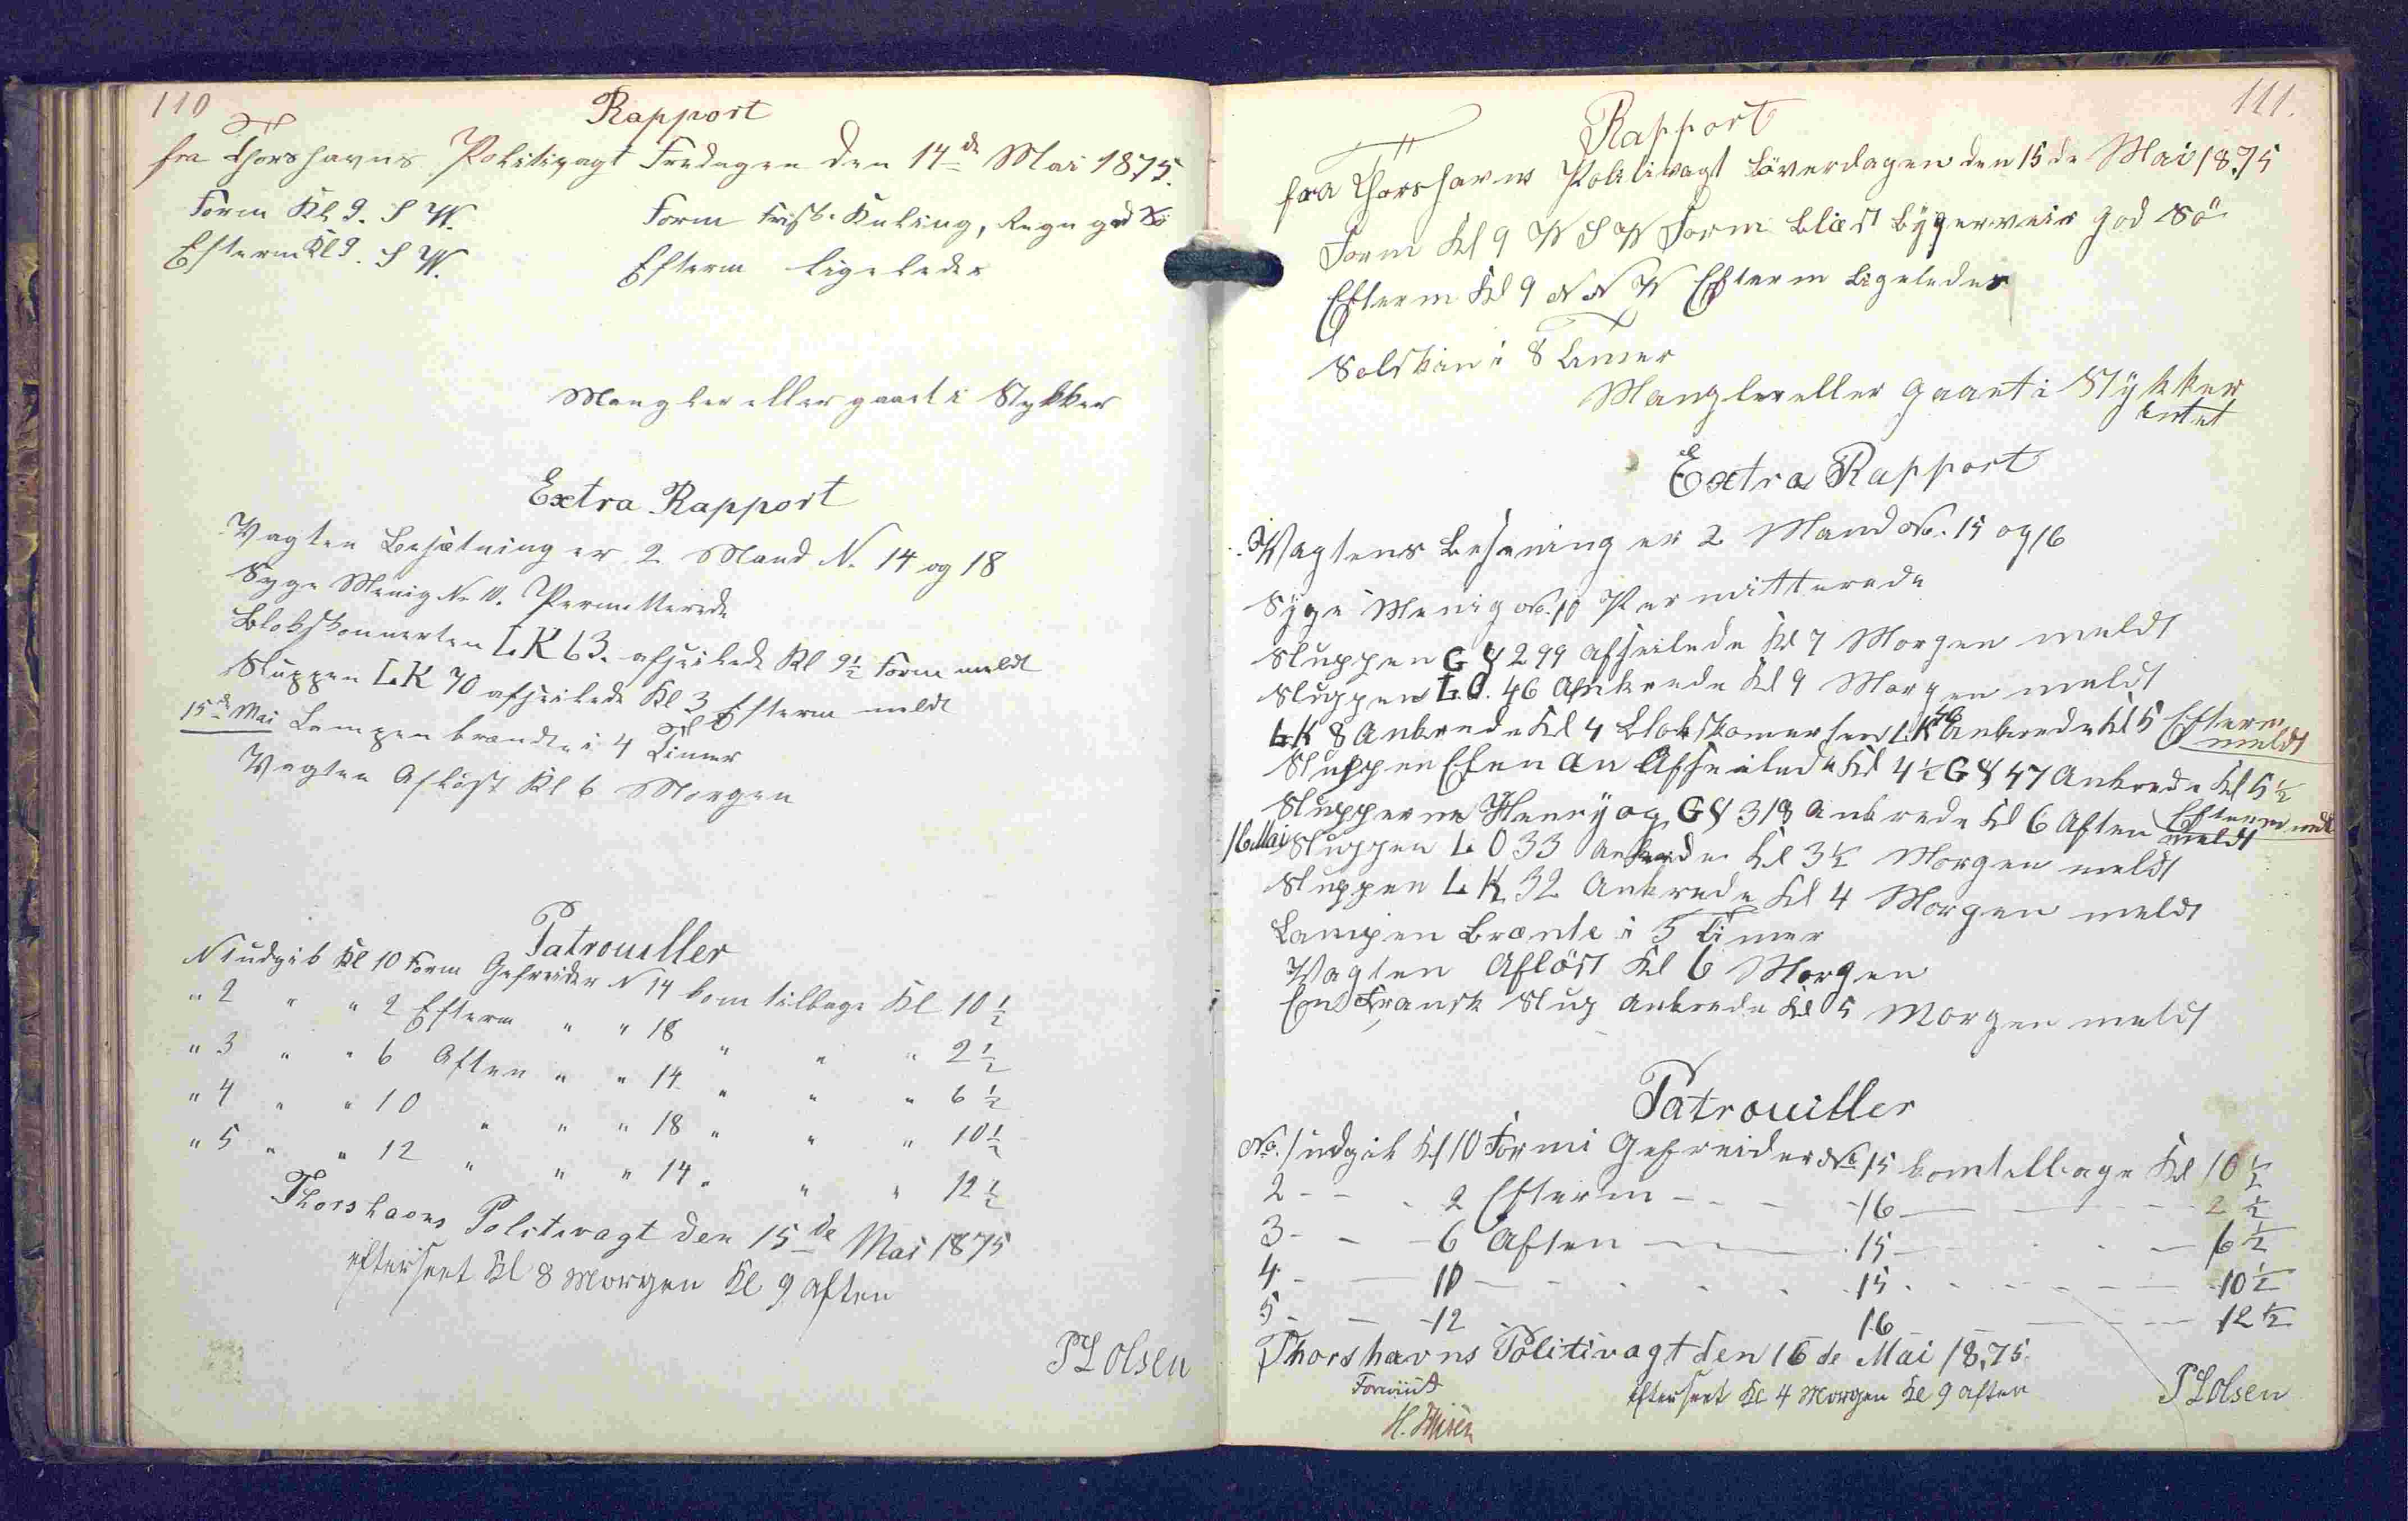 110
Rapport
fra Thorshavns Politivagt Fredagen den 14de Mai 1875.
Form Kl 9. S W. Form Frisk Kuling, Regn god Sö
Efterm Kl 9. S W. Efterm ligeledes
Mangler eller gaaet i Stykker
Extra Rapport
Vagten Besætning er 2 Mand N. 14 og 18
Syge Menig No 10. Permitterede
Blokskonnerten L.K 63. afseilede Kl 9½ Form meldt
Sluppen L.K 70 afseilede Kl 3 Efterm meldt
15de Mai Lampen brændte i 4 Timer
Vagten Aflöst Kl 6 Morgen
Patrouiller
N 1 udgik Kl 10 Form Gefreider N 14 kom tilbage Kl 10½
" 2 " " 2 Efterm " " 18 " " " 2½
" 3 " " 6 Aften " " 14 " " " 6½
" 4 " " 10 " " " 18 " " " 10½
" 5 " " 12 " " " 14 " " " 12½
Thorshavns Politivagt den 15de Mai 1875
efterseet Kl 8 Morgen Kl 9 aften
P L Olsen
111.
Rapport
fra Thorshavns Politivagt Löverdagen den 15de Mai 1875
Form Kl 9 W S W Form Blæst Bygerveir god Sö
Efterm Kl 9 N N W Efterm Ligeledes
Solskin i 8 Timer
Mangler eller gaaet i Stykker
Intet
Extra Rapport
Vagtens Besetning er 2 Mand No. 15 og 16
Syge Menig No. 10 Permitterede
Sluppen G Y 299 afseilede Kl 7 Morgen meldt
Sluppen L.O. 46 Ankrede Kl 9 Morgen meldt
L K 8 Ankrede Kl 4 Blokskonnerten L.K 46 Ankrede Kl 5 Efterm meldt
Sluppen Afseilede Kl 4½ G Y 47 Ankrede Kl 5½ Efterm meldt
Slupperne Henry og G Y 318 Ankrede Kl 6 Aften meldt
16 Mai Sluppen L O 33 Ankrede Kl 3½ Morgen meldt
Sluppen L K 32 Ankrede Kl 4 Morgen meldt
Lampen Brænte i 5 Timer
Vagten Aflöst Kl 6 Morgen
En Fransk Slup Ankrede Kl 5 Morgen meldt
Patrouiller
No. 1 udgik Kl 10 Formi Gefreider No 15 kom tilbage Kl 10½
2 - - - 2 Efterm - - - 16 - - - 2½
3 - - - 6 Aften - - 15 - - - 6½
4 - - 10 - - - 15 - - - 10½
5 - - 12 - - - 16 - - - 12½
Thorshavns Politivagt den 16de Mai 1875.
efterseet Kl 4 Morgen Kl 9 aften
P L Olsen